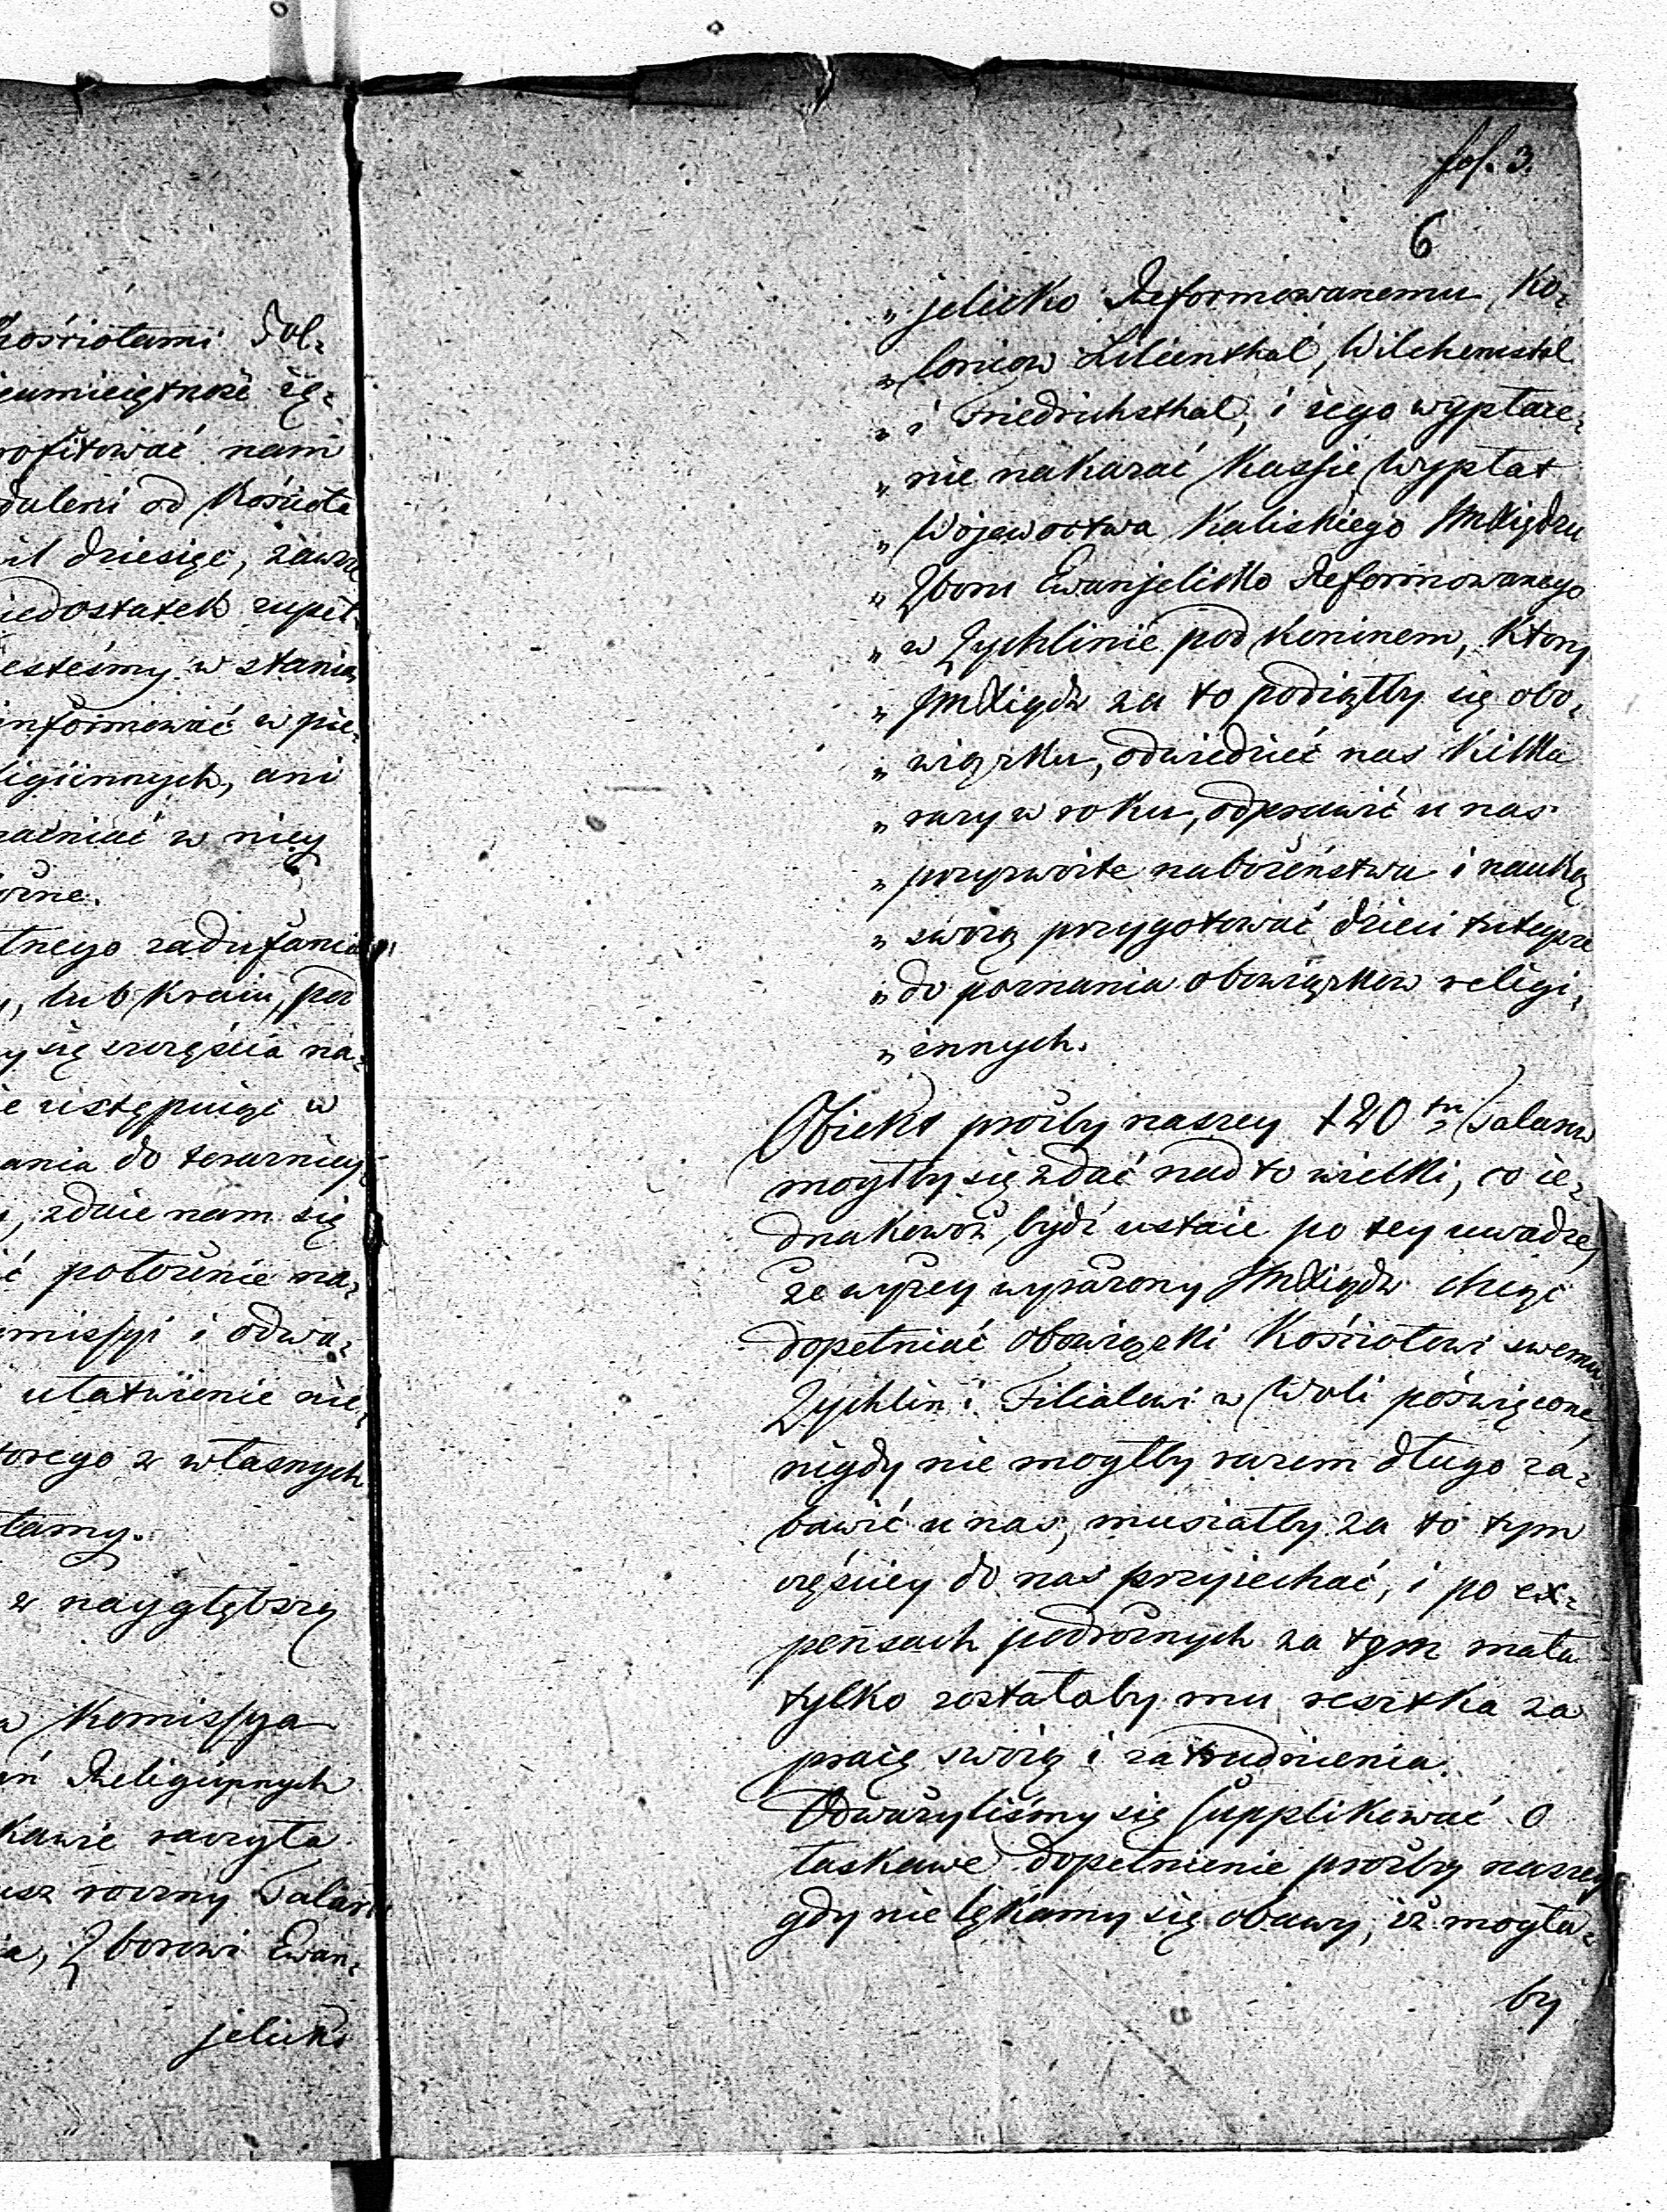 kościołami Pol-
ieumieiętność ię-
rofitować nam
daleni od Kościoła
il dziesięć, zawsze
iedostatek zupeł-
esteśmy w stanie
informować w pie-
ligiinnych, ani
racniać w niey
orne.
łnego zadufania
, lub Kraiu, pod
y się szczęścia na-
e ustępuiąc w
ania do teraźniey-
, zdaie nam się
ć położenie na-
missyi i odwa-
ułatwienie nie-
torego z własnych
łamy.
w naygłębszey
Komissya
ń Religiynych
kawie raczyła
usz roczny Talar
ia, Zborowi Ewan-
jelicko
fol. 3.
6
„ jelicko Reformowanemu Ko-
„ loniow Lilienthal, Wilchensthal
„ i Friedrichsthal, i iego wypłace-
„ nie nakazać Kassie Wypłat
„ Wojewoctwa Kaliskiego JmXiędzu
„ Zboru Ewanjelicko Reformowanego
„ w Zychlinie pod Koninem, Ktory
„ JmXiądz za to podiąłby się obo-
„ wiązku, odwiedzić nas kilka
„ razy w roku, odprawić u nas
„ przyzwoite nabożeństwa i nauką
„ swoią przygotować dzieci tuteysze
„ do poznania obowiązkow religi-
„ innych.
Obiekt proźby naszey 120 tu Talarow
mogłby się zdać nad to wielki, co ie-
dnakowoż bydź ustaie po tey uwadze,
że wyżey wyrażony JmXiądz chcąc
dopełniać obowiązki Kościołowi swemu
Zychlin i Filialowi w Woli poświęcone,
nigdy nie mogłby razem długo za-
bawić u nas, musiałby za to tym
częściey do nas przyiechać, i po ex-
pensach podrożnych za tym mała
tylko zostałaby mu resztka za
pracę swoią i zatrudnienia.
Odważyliśmy się supplikować o
łaskawe dopełnienie proźby naszey
gdy nie lękamy się obawy, iż mogła-
by